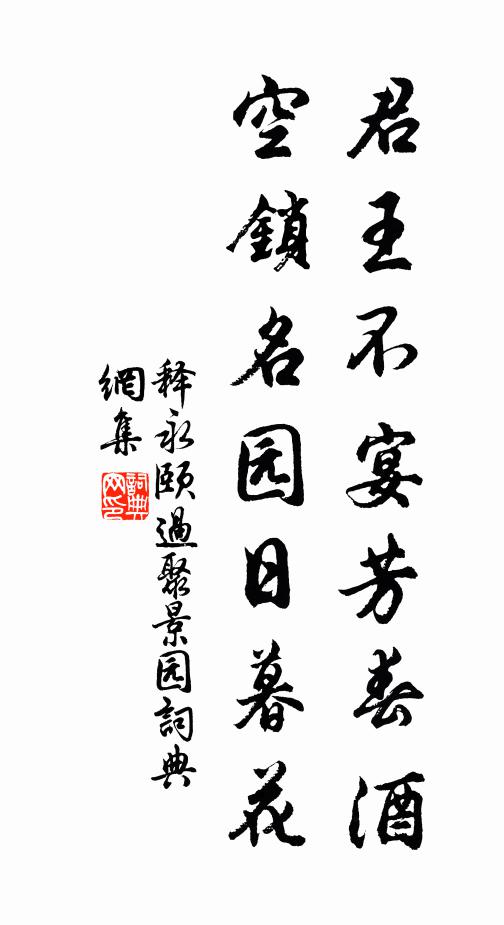 君王不宴芳春酒
空鎖名园日暮花
释永颐過聚景园詞典
網集
詞典
网印